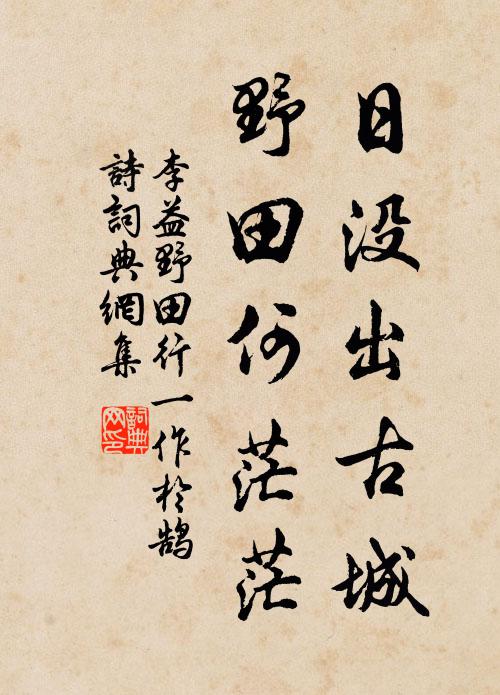 日没出古城
野田何茫茫
李益野田行一作於鹄
詩詞典網集
詞典网印